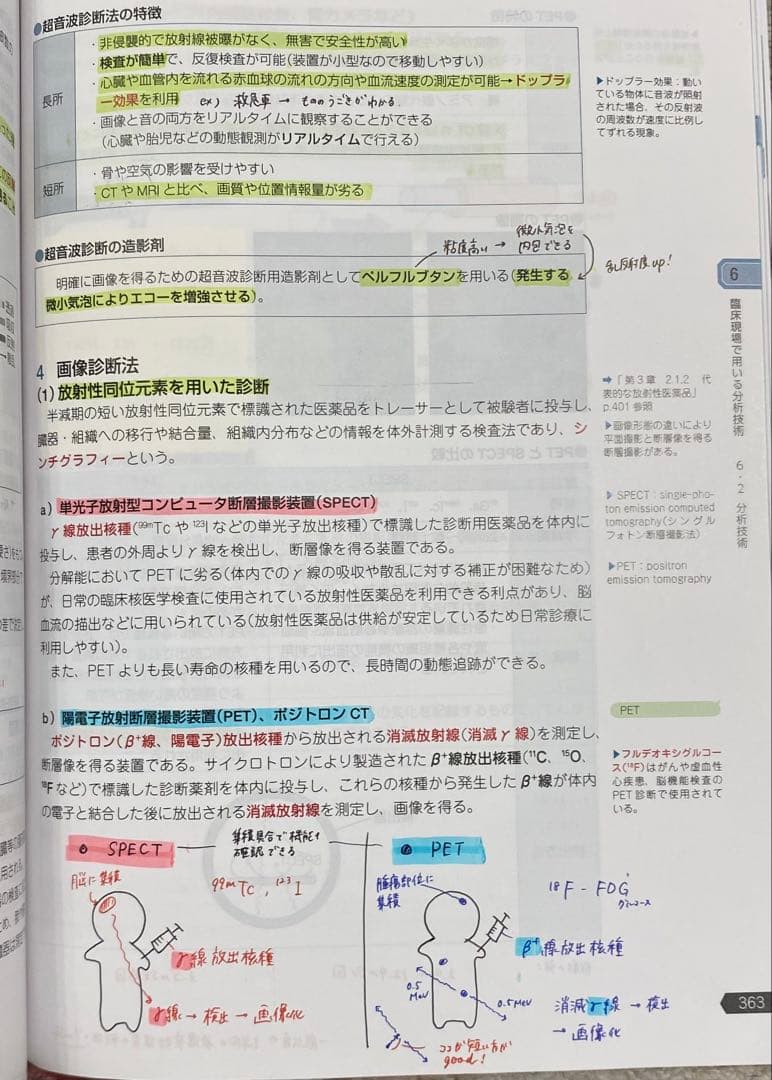 ●超音波診断法の特徴
長所
・非侵襲的で放射線被曝がなく、無害で安全性が高い
・検査が簡単で、反復検査が可能(装置が小型なので移動しやすい)
・心臓や血管内を流れる赤血球の流れの方向や血流速度の測定が可能→ドップラ
ー効果を利用 ex) 救急車 → もののうごきがわかる.
・画像と音の両方をリアルタイムに観察することができる
(心臓や胎児などの動態観測がリアルタイムで行える)
短所
・骨や空気の影響を受けやすい
・CTやMRIと比べ、画質や位置情報量が劣る
▶ドップラー効果:動い
ている物体に音波が照射
された場合、その反射波
の周波数が速度に比例し
てずれる現象。
●超音波診断の造影剤
粘度高い → 微小気泡を
内包できる
乱反射度up!
明確に画像を得るための超音波診断用造影剤としてペルフルブタンを用いる(発生する
微小気泡によりエコーを増強させる)。
6
臨床現場で用いる分析技術 6・2 分析技術
4 画像診断法
(1)放射性同位元素を用いた診断
半減期の短い放射性同位元素で標識された医薬品をトレーサーとして被験者に投与し、
臓器・組織への移行や結合量、組織内分布などの情報を体外計測する検査法であり、シ
ンチグラフィーという。
➡「第3章 2.1.2 代
表的な放射性医薬品」
p.401 参照
▶画像形態の違いにより
平面撮影と断層像を得る
断層撮影がある。
a)単光子放射型コンピュータ断層撮影装置(SPECT)
γ線放出核種(⁹⁹ᵐTcや¹²³Iなどの単光子放出核種)で標識した診断用医薬品を体内に
投与し、患者の外周よりγ線を検出し、断層像を得る装置である。
分解能においてPETに劣る(体内でのγ線の吸収や散乱に対する補正が困難なため)
が、日常の臨床核医学検査に使用されている放射性医薬品を利用できる利点があり、脳
血流の描出などに用いられている(放射性医薬品は供給が安定しているため日常診療に
利用しやすい)。
また、PETよりも長い寿命の核種を用いるので、長時間の動態追跡ができる。
▶SPECT:single-pho-
ton emission computed
tomography(シングル
フォトン断層撮影法)
▶PET:positron
emission tomography
b)陽電子放射断層撮影装置(PET)、ポジトロンCT
ポジトロン(β⁺線、陽電子)放出核種から放出される消滅放射線(消滅γ線)を測定し、
断層像を得る装置である。サイクロトロンにより製造されたβ⁺線放出核種(¹¹C、¹⁵O、
¹⁸Fなど)で標識した診断薬剤を体内に投与し、これらの核種から発生したβ⁺線が体内
の電子と結合した後に放出される消滅放射線を測定し、画像を得る。
PET
▶フルデオキシグルコー
ス(¹⁸F)はがんや虚血性
心疾患、脳機能検査の
PET診断で使用されて
いる。
● SPECT
集積具合で機能も
確認できる
● PET
脳に集積
99mTc , 123I
γ線放出核種
γ線 → 検出 → 画像化
腫瘍部位に
集積
18F - FDG
グルコース
β⁺線放出核種
0.5
MeV
0.5MeV
消滅γ線 → 検出
→ 画像化
ココが短い方が
good!
363